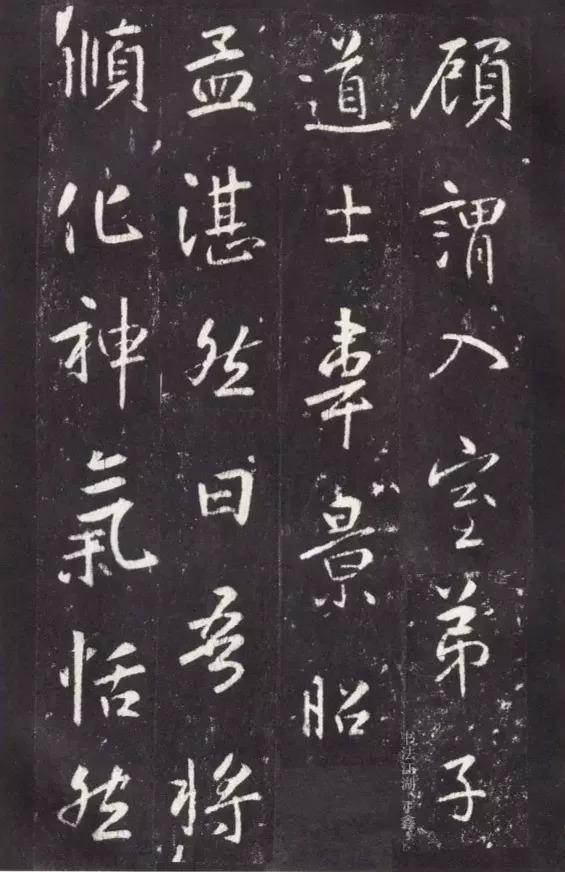 顧謂入室弟子
道士韋景昭
孟湛然曰吾將
順化神氣恬然
书法江湖